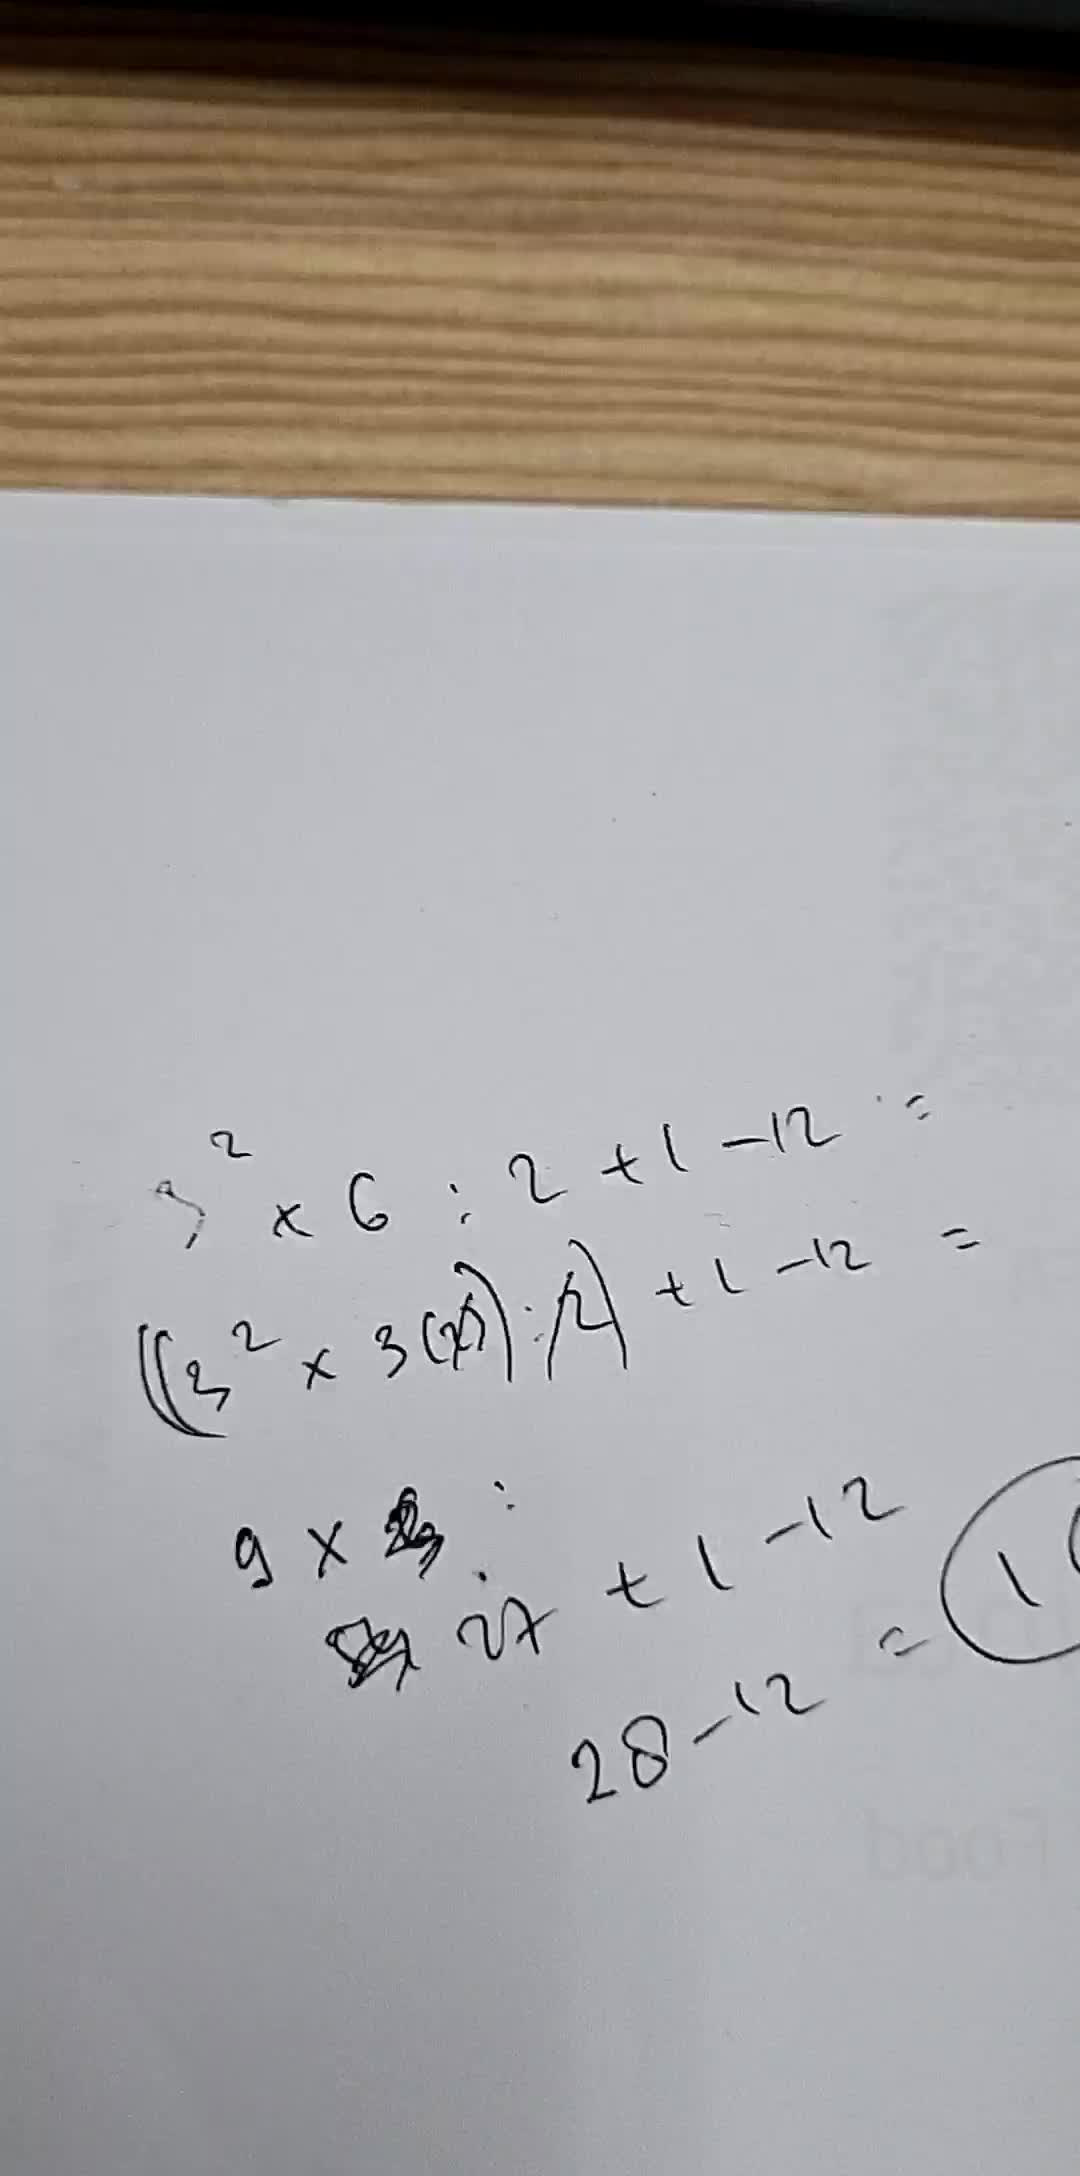 3² × 6 : 2 + 1 - 12 =
((3² × 3(2)) : 2) + 1 - 12 =
9 × 3 :
27 + 1 - 12
28 - 12 = 1